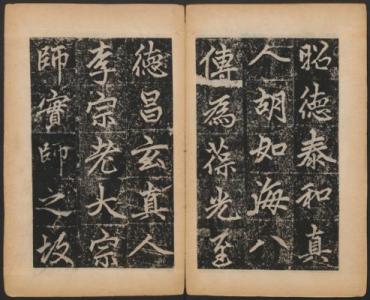 昭德泰和真
人胡如海八
傳為葆光至
德昌玄真人
李宗老大宗
師實師之故